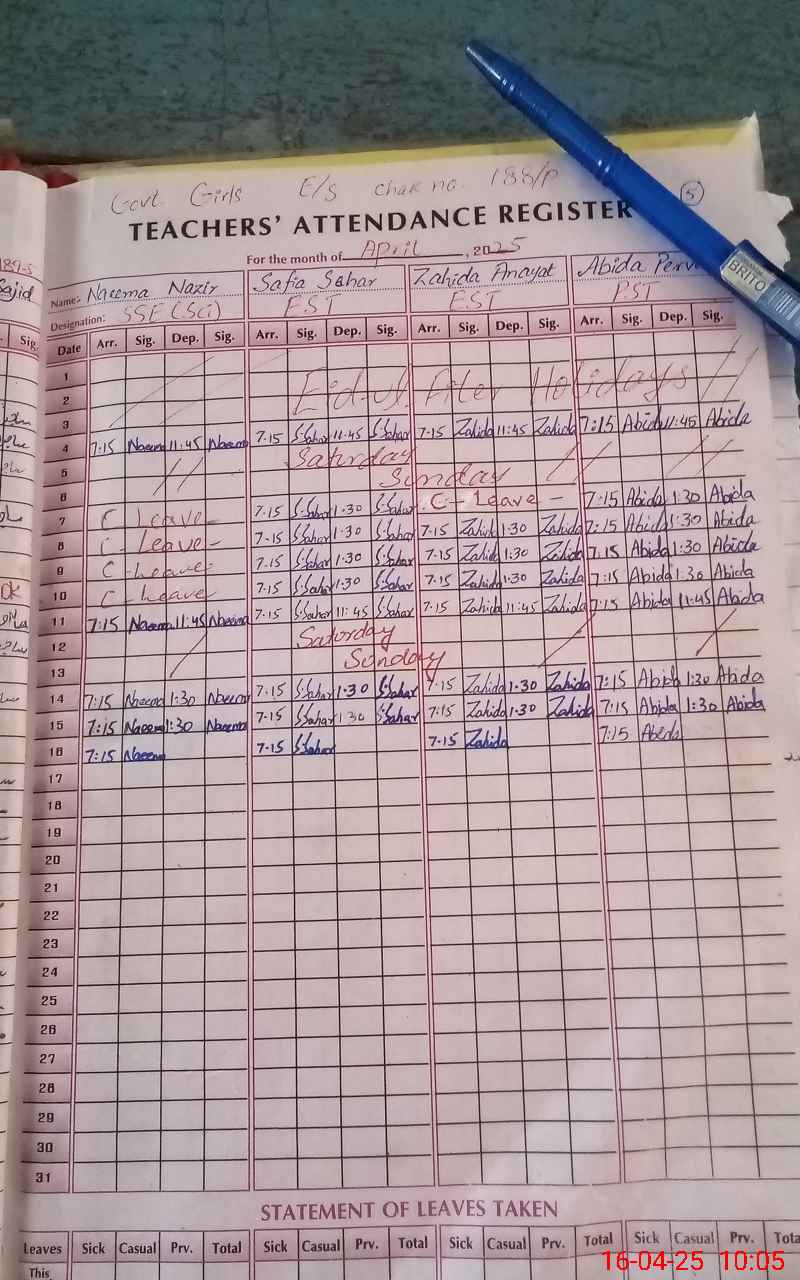 Govt. Girls E/S chak no. 188/P 5
TEACHERS' ATTENDANCE REGISTER
For the month of April, 2025
Name: Naeema Nazir Safia Sahar Zahida Anayat Abida
Designation: SSE (Sci) EST EST PST
Date Arr. Sig. Dep. Sig. Arr. Sig. Dep. Sig. Arr. Sig. Dep. Sig. Arr. Sig. Dep. Sig.
1
2 Eid-ul Fiter Holidays
3
4 7:15 Naeema 11:45 Naeema 7.15 S.Sahar 11.45 S.Sahar 7-15 Zahida 11:45 Zahida 7:15 Abida 11:45 Abida
5 Saturday
6 Sunday
7 C Leave - 7.15 S.Sahar 1.30 S.Sahar C - Leave - 7:15 Abida 1:30 Abida
8 C - Leave - 7.15 S.Sahar 1.30 S.Sahar 7-15 Zahida 1:30 Zahida 7:15 Abida 1:30 Abida
9 C - Leave 7.15 S.Sahar 1.30 S.Sahar 7-15 Zahida 1:30 Zahida 7:15 Abida 1:30 Abida
10 C - Leave 7.15 S.Sahar 1.30 S.Sahar 7-15 Zahida 1.30 Zahida 7:15 Abida 1:30 Abida
11 7:15 Naeema 11:45 Naeema 7-15 S.Sahar 11:45 S.Sahar 7-15 Zahida 11:45 Zahida 7:15 Abida 11:45 Abida
12 Saturday
13 Sunday
14 7:15 Naeema 1:30 Naeema 7-15 S.Sahar 1.30 S.Sahar 7-15 Zahida 1.30 Zahida 7:15 Abida 1:30 Abida
15 7:15 Naeema 1:30 Naeema 7-15 S.Sahar 1.30 S.Sahar 7-15 Zahida 1.30 Zahida 7:15 Abida 1:30 Abida
16 7:15 Naeema 7-15 S.Sahar 7-15 Zahida 7:15 Abida
17
18
19
20
21
22
23
24
25
26
27
28
29
30
31
STATEMENT OF LEAVES TAKEN
Leaves Sick Casual Prv. Total Sick Casual Prv. Total Sick Casual Prv. Total Sick Casual Prv. Total
This
BRITO
16-04-25 10:05